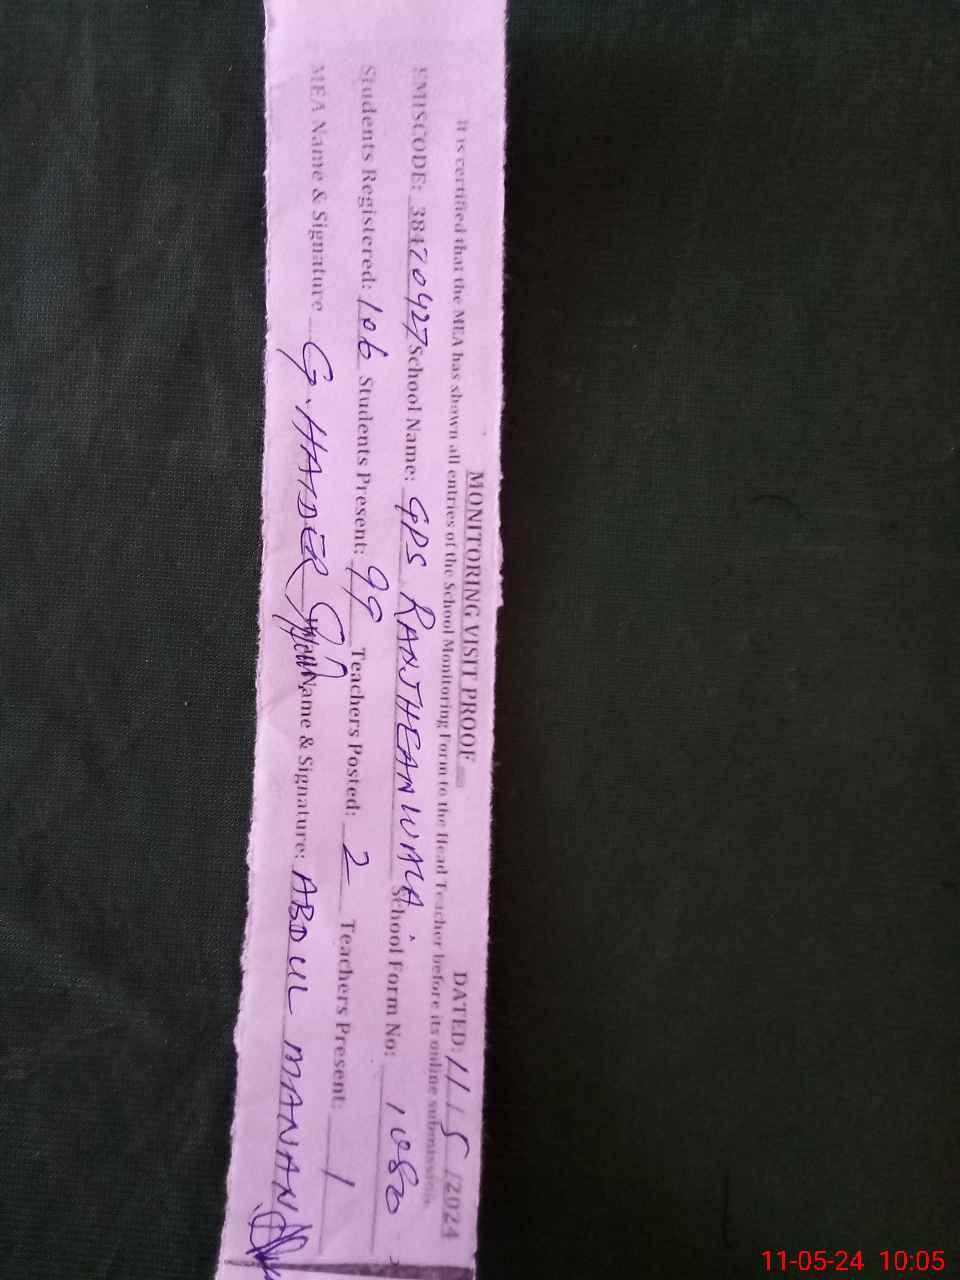 MONITORING VISIT PROOF DATED: 11/5/2024
It is certified that the MEA has shown all entries of the School Monitoring Form to the Head Teacher before its online submission.
EMISCODE: 38420427 School Name: GPS RANJHEANWALA. School Form No: 1080
Students Registered: 106 Students Present: 99 Teachers Posted: 2 Teachers Present: 1
MEA Name & Signature G. HAIDER Name & Signature: ABDUL MANAN
11-05-24 10:05